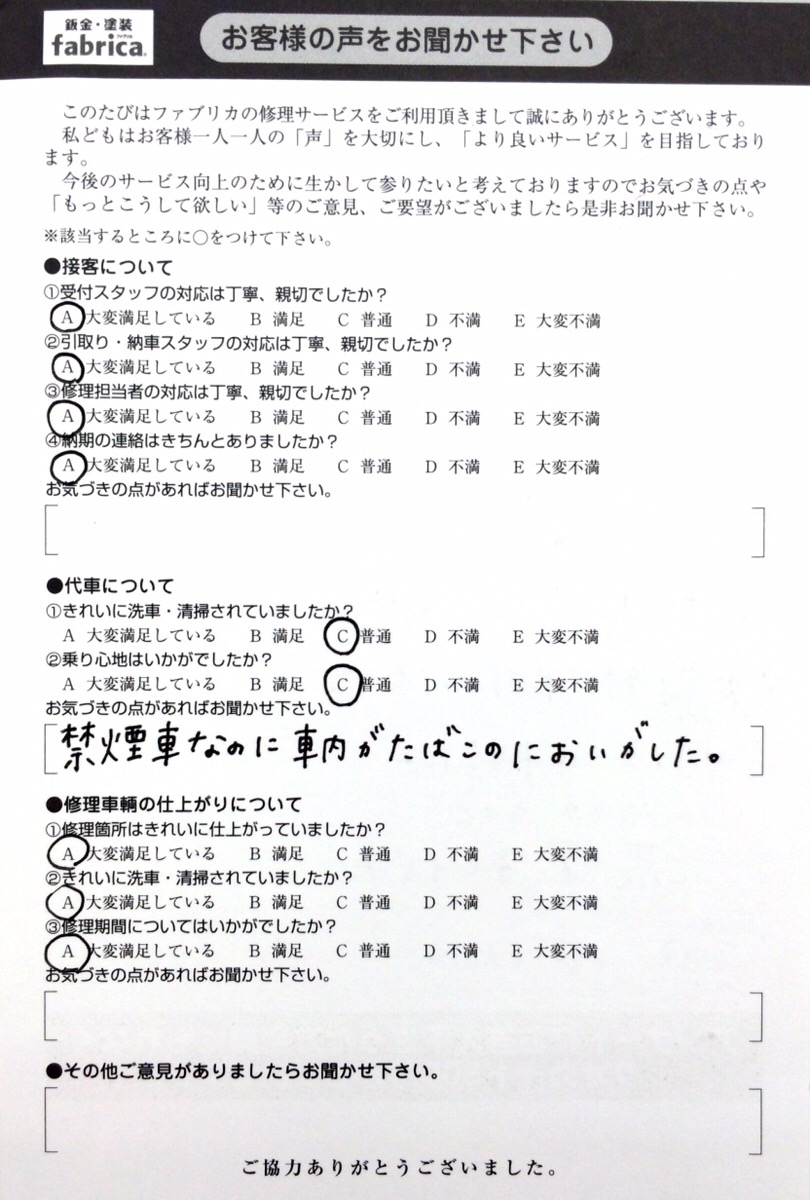 鈑金・塗装
fabrica
ファブリカ
お客様の声をお聞かせ下さい
このたびはファブリカの修理サービスをご利用頂きまして誠にありがとうございます。
私どもはお客様一人一人の「声」を大切にし、「より良いサービス」を目指しており
ます。
今後のサービス向上のために生かして参りたいと考えておりますのでお気づきの点や
「もっとこうして欲しい」等のご意見、ご要望がございましたら是非お聞かせ下さい。
※該当するところに○をつけて下さい。
●接客について
①受付スタッフの対応は丁寧、親切でしたか？
A 大変満足している B 満足 C 普通 D 不満 E 大変不満
②引取り・納車スタッフの対応は丁寧、親切でしたか？
A 大変満足している B 満足 C 普通 D 不満 E 大変不満
③修理担当者の対応は丁寧、親切でしたか？
A 大変満足している B 満足 C 普通 D 不満 E 大変不満
④納期の連絡はきちんとありましたか？
A 大変満足している B 満足 C 普通 D 不満 E 大変不満
お気づきの点があればお聞かせ下さい。
●代車について
①きれいに洗車・清掃されていましたか？
A 大変満足している B 満足 C 普通 D 不満 E 大変不満
②乗り心地はいかがでしたか？
A 大変満足している B 満足 C 普通 D 不満 E 大変不満
お気づきの点があればお聞かせ下さい。
禁煙車なのに車内がたばこのにおいがした。
●修理車輌の仕上がりについて
①修理箇所はきれいに仕上がっていましたか？
A 大変満足している B 満足 C 普通 D 不満 E 大変不満
②きれいに洗車・清掃されていましたか？
A 大変満足している B 満足 C 普通 D 不満 E 大変不満
③修理期間についてはいかがでしたか？
A 大変満足している B 満足 C 普通 D 不満 E 大変不満
お気づきの点があればお聞かせ下さい。
●その他ご意見がありましたらお聞かせ下さい。
ご協力ありがとうございました。